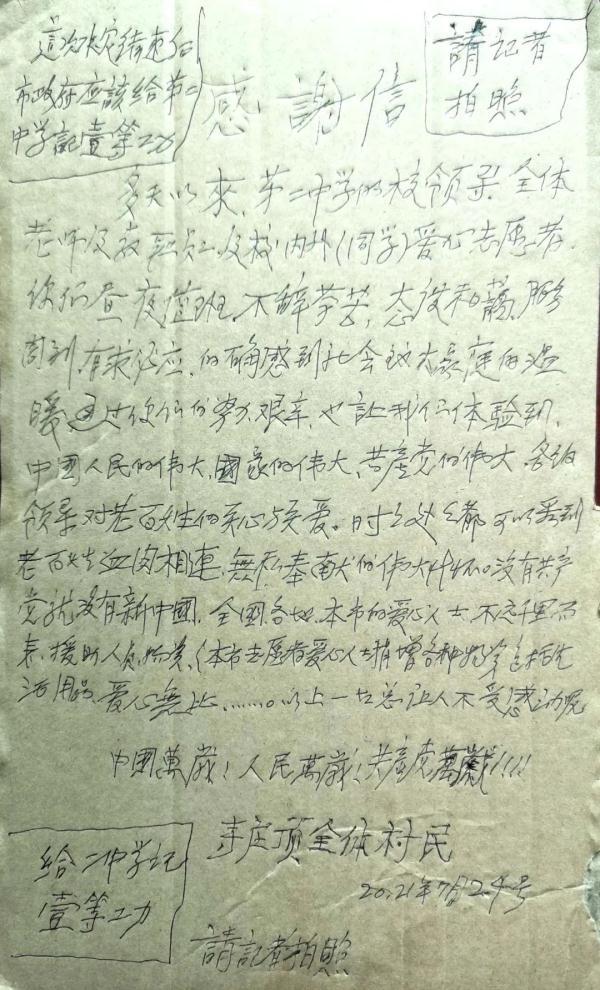 這次
市政府应該给第二
中学記壹等功
請記者
拍照
感謝信
多天以來,第二中学的校领导,全体
老师及教职员工及校内外(同学)爱心志愿者,
你们昼夜值班,不辞劳苦,态度和藹,服務
周到,有求必应,的确感到社会的大家庭的温
暖,通过你们的努力艰辛,也讓我们体验到,
中國人民的伟大,國家的伟大,共產党的伟大,各级
领导对老百姓的关心与关爱。时时处处都可以看到
老百姓血肉相連,無私奉献的伟大情怀。没有共产
党就没有新中國,全國各地,本市的爱心人士,不远千里而
来,援助人员,物资,(本市志愿者爱心人士捐增各种物资包括生
活用品,爱心無比,……。以上一切怎让人不受感动呢
中國萬歲!人民萬歲!共產党萬歲!!!!
李庄頂全体村民
2021年7月29号
给二中学記
壹等功
請記者拍照